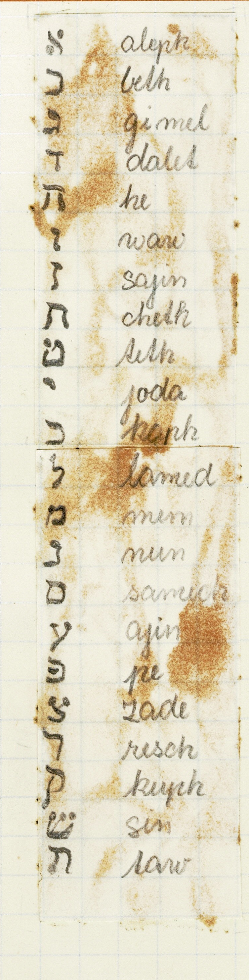 א aleph
ב beth
ג gimel
ד dalet
ה he
ו waw
ז sajin
ח cheth
ט teth
י joda
כ kaph
ל lamed
מ mem
נ nun
ס samech
ע ajin
פ pe
צ zade
ר resch
ק kuph
ש sin
ת taw